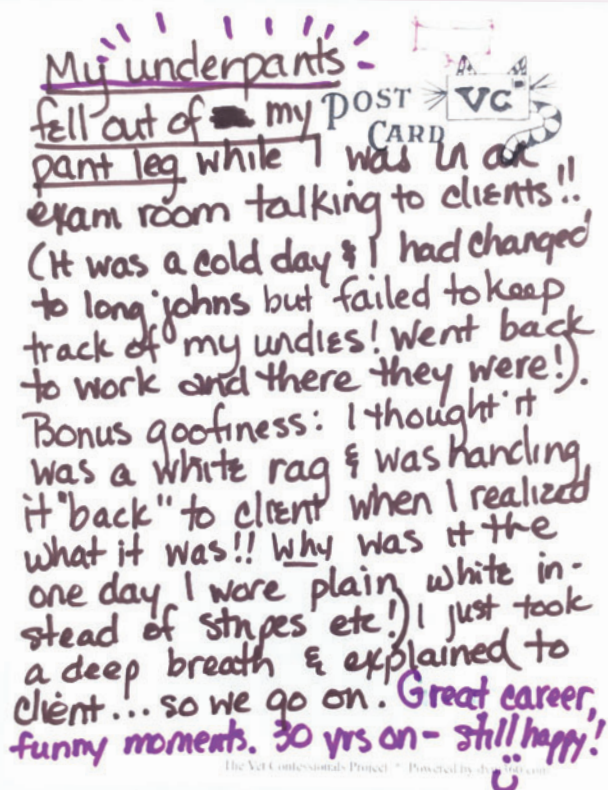 My underpants
fell out of my
POST
CARD
VC
pant leg while I was in an
exam room talking to clients!!
(It was a cold day & I had changed
to long johns but failed to keep
track of my undies! Went back
to work and there they were!).
Bonus goofiness: I thought it
was a white rag & was handing
it "back" to client when I realized
what it was!! Why was it the
one day I wore plain white in-
stead of stripes etc!) I just took
a deep breath & explained to
client... so we go on. Great career,
funny moments. 30 yrs on - still happy!
The Vet Confessionals Project * Powered by